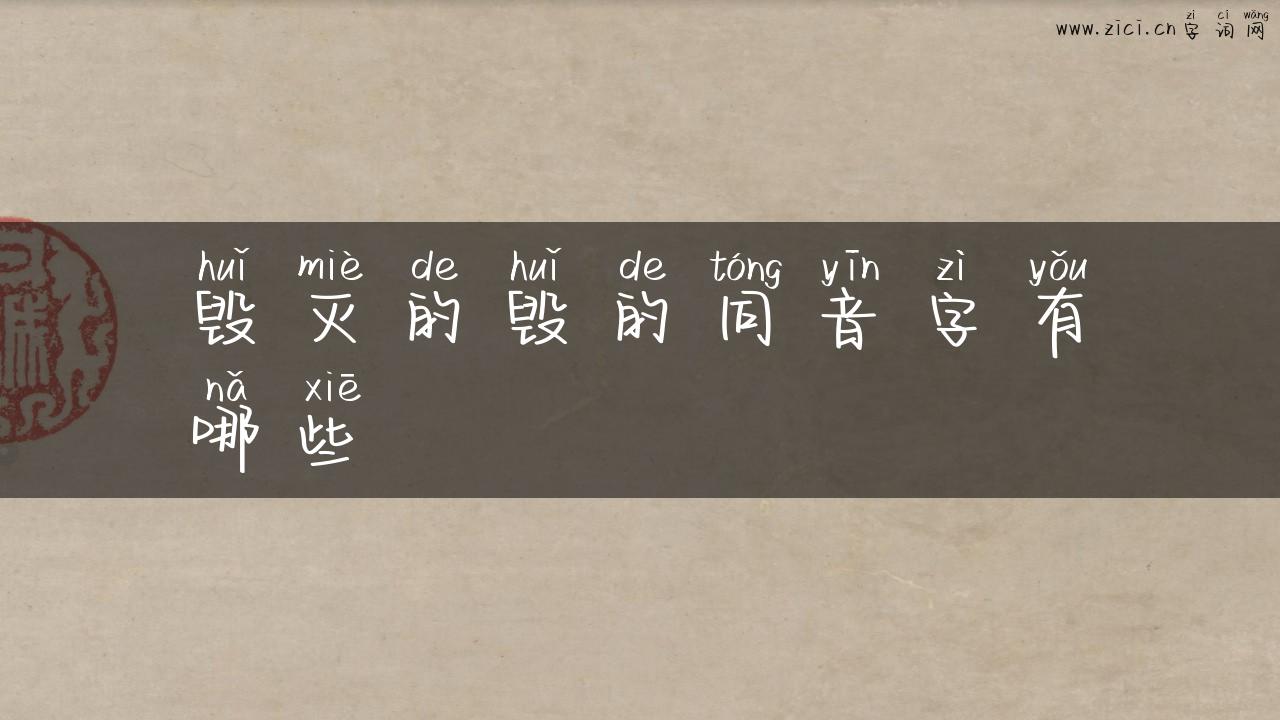 zì cí wǎng
www.zici.cn 字词网
huǐ miè de huǐ de tóng yīn zì yǒu
毁灭的毁的同音字有
nǎ xiē
哪些